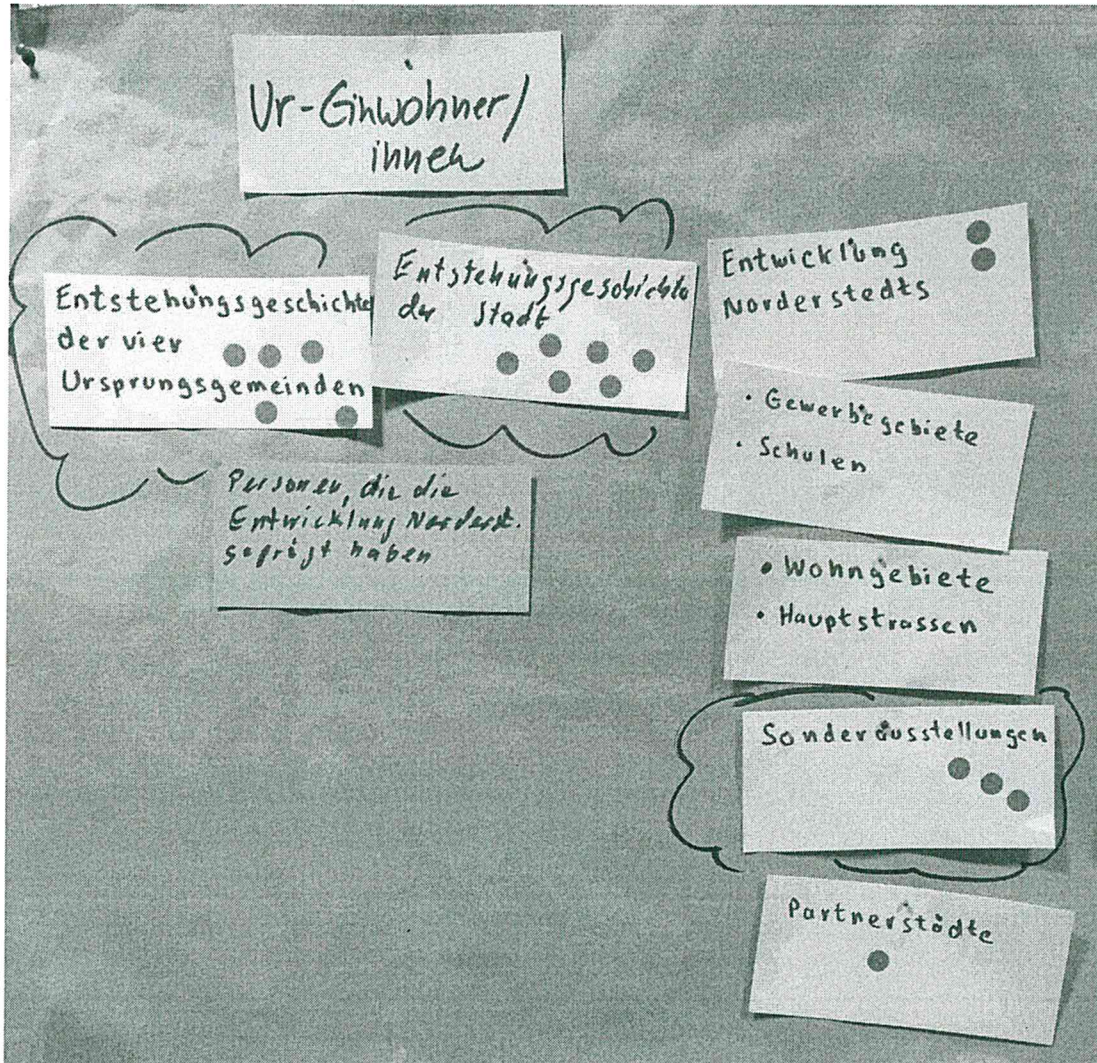 Ur-Einwohner/
innen
Entstehungsgeschichte
der vier
Ursprungsgemeinden
Entstehungsgeschichte
der Stadt
Personen, die die
Entwicklung Norderst.
geprägt haben
Entwicklung
Norderstedts
• Gewerbegebiete
• Schulen
• Wohngebiete
• Hauptstrassen
Sonderausstellungen
Partnerstädte